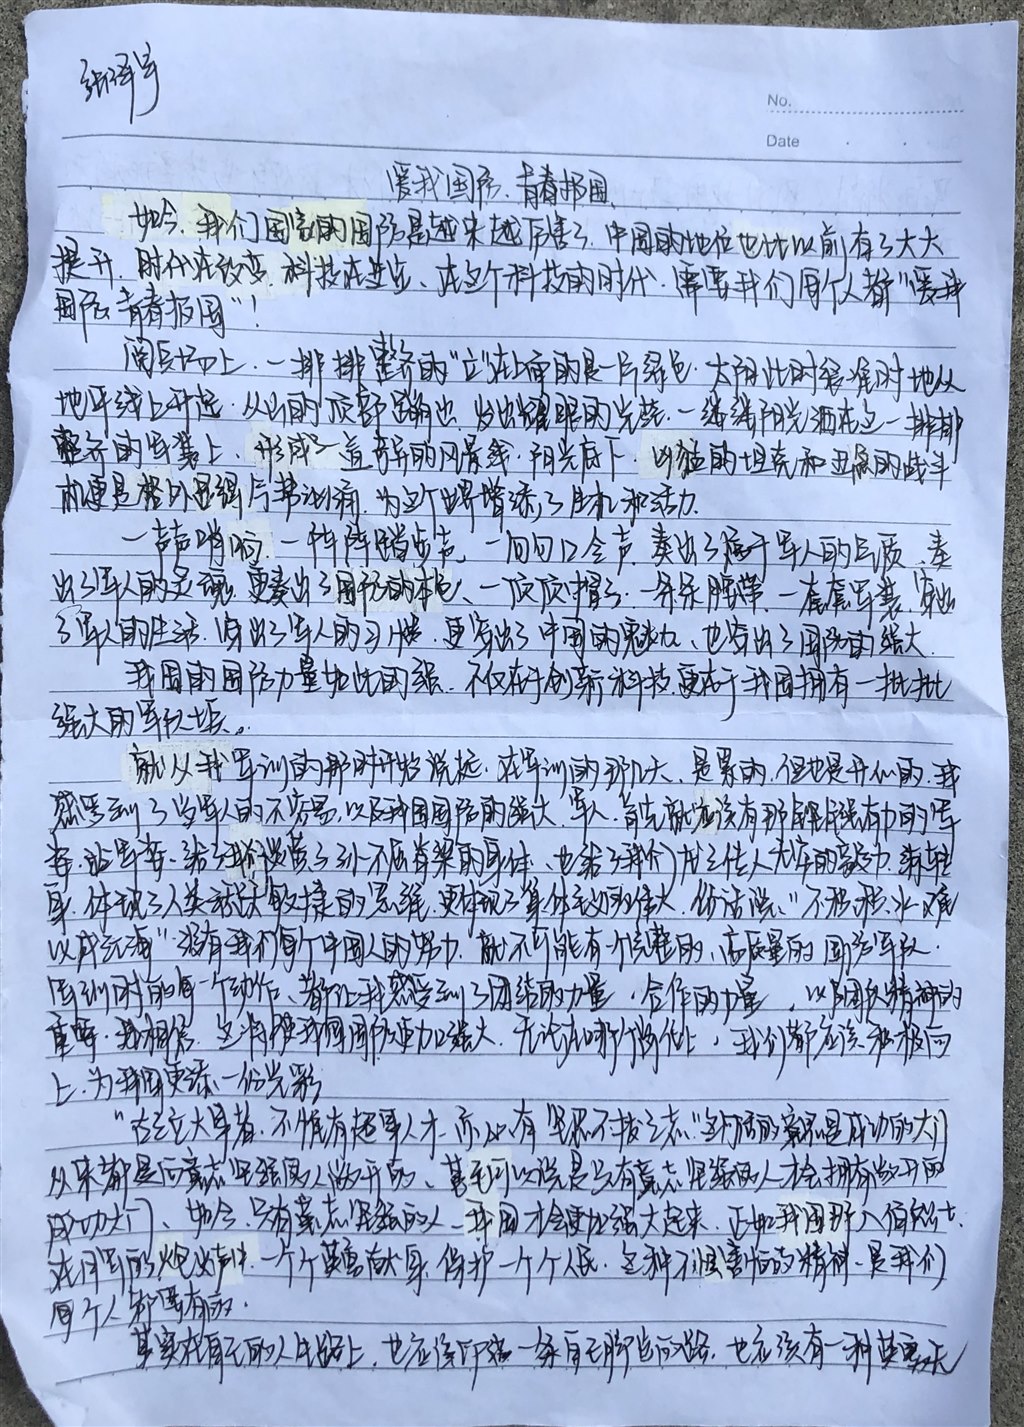 No.
Date
爱我国防、青春报国
如今、我们国家的国防是越来越厉害了、中国的地位也比以前有了大大
提升、时代在改变、科技在进步、在这个科技的时代、需要我们每个人都“爱我
国防青春报国”！
阅兵场上、一排排整齐的“立”在上面的是一片绿色、太阳此时缓缓时地从
地平线上升起、从山的顶部蹦出、发出耀眼的光芒、一缕缕阳光洒在这一排排
整齐的军装上、形成了一道奇异的风景线、阳光底下、凶猛的坦克和
机更是格外、为这个世界增添了生机和活力
一声声哨响、一阵阵踏步声、一句句口令声、奏出了属于军人的气质、奏
出了军人的灵魂、更奏出了国防的本色、一顶顶帽子、一条条腰带、一套套军装、穿出
了军人的生活、穿出了军人的习惯、更穿出了中国的魅力、也穿出了国防的强大
我国的国防力量如此的强、不仅在于创新科技、更在于我国拥有一批批
强大的军队士兵。
就从我军训的那时开始说起、在军训的那几天、是累的、但也是开心的、我
感受到了当军人的不容易、以及我国国防的强大、军人、首先就应该有那强有力的军
姿、站军姿、给了我们不屈脊梁的身体、也给了我们的毅力
体现了人类的思维、更体现了集体主义的伟大、俗话说：“不积水、难
以成江海”没有我们每个中国人的努力、就不可能有一个完整的、高质量的国防军队、
军训时的每一个动作、都让我感受到了团结的力量、合作的力量、以及团队精神的
重要、我相信、这将使我国国防更加强大、无论在哪个岗位上，我们都应该积极向
上、为我国更添一份光彩
“古之立大事者、不惟有超世之才、亦必有坚忍不拔之志”这句话的意思是成功的大门
从来都是向意志坚强的人敞开的、甚至可以说是只有意志坚强的人才会拥有敞开的
成功大门、如今、只有意志坚强的人、我国才会更加强大起来、正如我国那八佰壮士
在日军的炮火声中、一个个英勇献身、保护一个个人民、这种不惧害怕的精神、是我们
每个人都要有的、
其实在每天的人生路上、也应该印着一条自己脚步的路、也应该有一种英勇